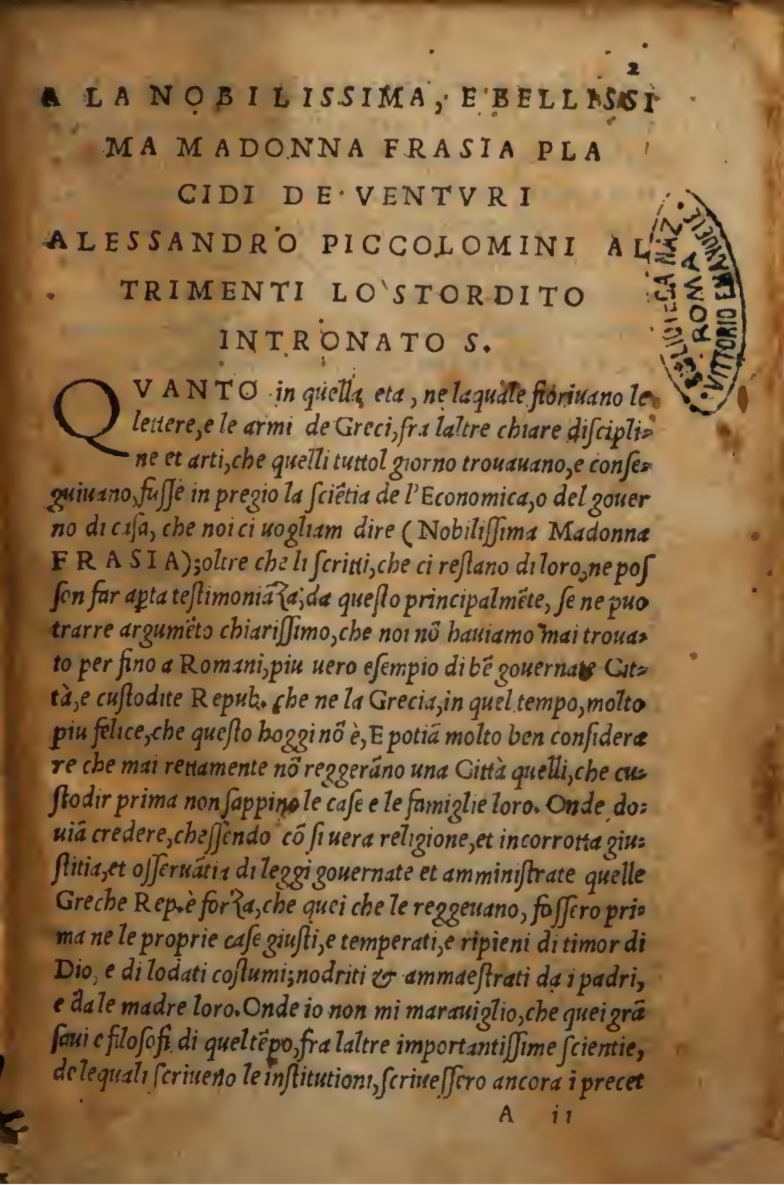 2
A LA NOBILISSIMA, E BELLISSI
MA MADONNA FRASIA PLA
CIDI DE VENTVRI
ALESSANDRO PICCOLOMINI AL
TRIMENTI LO STORDITO
INTRONATO S.
BIBLIOTECA NAZ.
ROMA
VITTORIO EMANUELE
QVANTO in quella eta, ne laquale fioriuano le
lettere, e le armi de Greci, fra laltre chiare diſcipli=
ne et arti, che quelli tuttol giorno trouauano, e conſe=
guiuano, fuſſe in pregio la ſciẽtia de l'Economica, o del gouer
no di caſa, che noi ci uogliam dire (Nobiliſſima Madonna
FRASIA); oltre che li ſcritti, che ci reſtano di loro, ne poſ
ſon far apta teſtimoniãza; da queſto principalmẽte, ſe ne puo
trarre argumẽto chiariſſimo, che noi nõ hauiamo mai troua=
to per fino a Romani, piu uero eſempio di bẽ gouernate Cit=
tà, e cuſtodite Repub. che ne la Grecia, in quel tempo, molto
piu felice, che queſto hoggi nõ è, E potiã molto ben conſidera
re che mai rettamente nõ reggerãno una Città quelli, che cu=
ſtodir prima non ſappino le caſe e le famiglie loro. Onde do=
uiã credere, cheſſendo cõ ſi uera religione, et incorrotta giu=
ſtitia, et oſſeruãtia di leggi gouernate et amminiſtrate quelle
Greche Rep. è forza, che quei che le reggeuano, foſſero pri=
ma ne le proprie caſe giuſti, e temperati, e ripieni di timor di
Dio, e di lodati coſtumi; nodriti & ammaeſtrati da i padri,
e da le madre loro. Onde io non mi marauiglio, che quei grã
ſaui e filoſofi di quel tẽpo, fra laltre importantiſſime ſcientie,
de lequali ſcriueno le inſtitutioni, ſcriueſſero ancora i precet
A ii